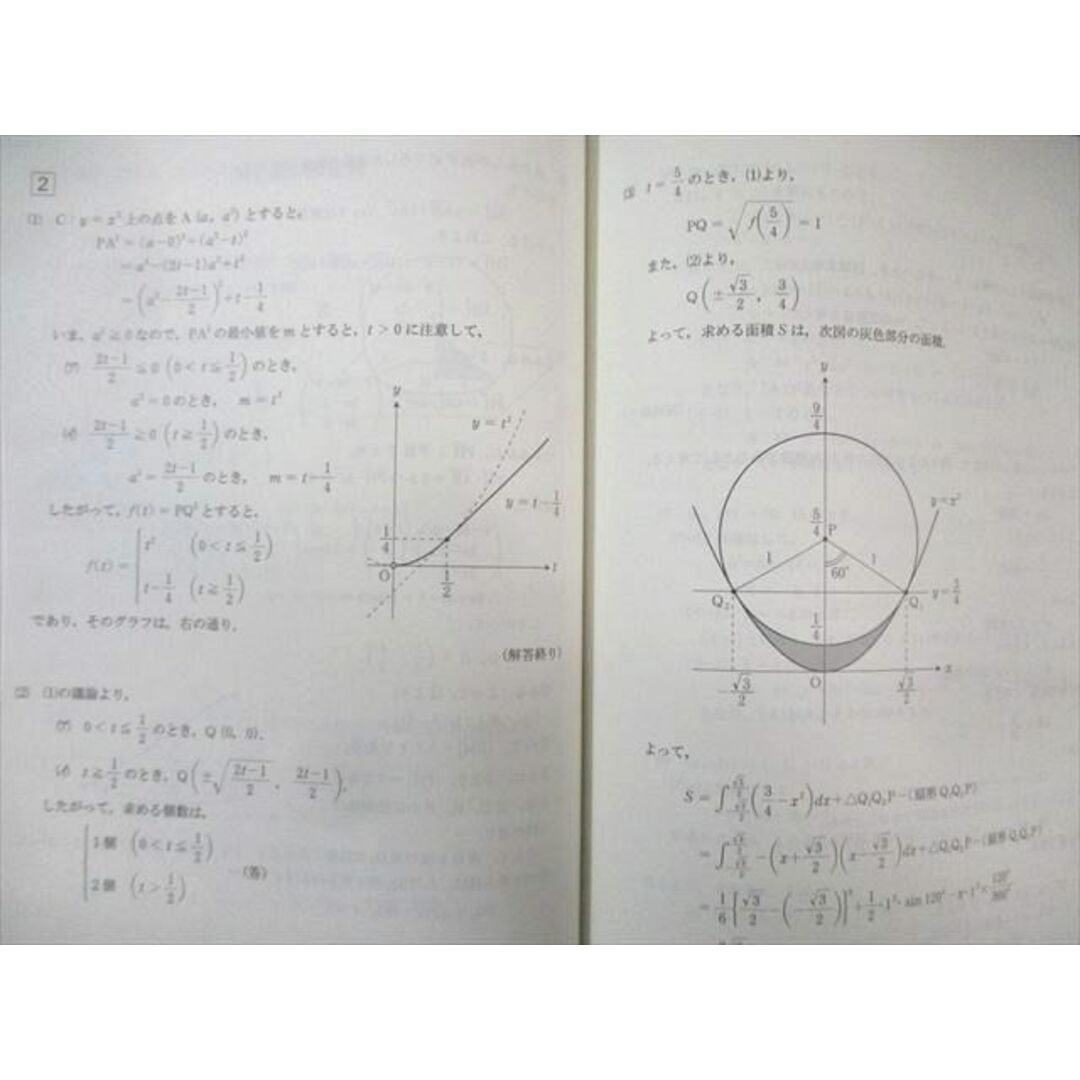 2
(1) C : y = x² 上の点を A (a, a²) とすると,
PA² = (a−0)²+(a²−t)²
= a⁴−(2t−1)a²+t²
= (a²−\frac{2t−1}{2})²+t−\frac{1}{4}
いま, a² ≧ 0 なので, PA² の最小値を m とすると, t > 0 に注意して,
(ア) \frac{2t−1}{2} ≦ 0 (0 < t ≦ \frac{1}{2}) のとき,
a² = 0 のとき, m = t²
(イ) \frac{2t−1}{2} ≧ 0 (t ≧ \frac{1}{2}) のとき,
a² = \frac{2t−1}{2} のとき, m = t−\frac{1}{4}
したがって, f(t) = PQ² とすると,
f(t) =
t² (0 < t ≦ \frac{1}{2})
t−\frac{1}{4} (t ≧ \frac{1}{2})
であり, そのグラフは, 右の通り.
y
y = t²
y = t−\frac{1}{4}
\frac{1}{4}
O
\frac{1}{2}
t
(解答終り)
(2) (1)の議論より,
(ア) 0 < t ≦ \frac{1}{2} のとき, Q (0, 0).
(イ) t ≧ \frac{1}{2} のとき, Q(±\sqrt{\frac{2t−1}{2}}, \frac{2t−1}{2}).
したがって, 求める個数は,
1個 (0 < t ≦ \frac{1}{2})
2個 (t > \frac{1}{2})
(答)
(3) t = \frac{5}{4} のとき, (1)より,
PQ = \sqrt{f(\frac{5}{4})} = 1
また, (2)より,
Q(±\frac{\sqrt{3}}{2}, \frac{3}{4})
よって, 求める面積 S は, 次図の灰色部分の面積.
y
\frac{9}{4}
y=x²
\frac{5}{4}
P
1
1
60°
Q₂
Q₁
y=\frac{3}{4}
\frac{1}{4}
O
x
−\frac{\sqrt{3}}{2}
\frac{\sqrt{3}}{2}
よって,
S = ∫_{−\frac{\sqrt{3}}{2}}^{\frac{\sqrt{3}}{2}} (\frac{3}{4} − x²)dx+△Q₁Q₂P−(扇形Q₁Q₂P)
= ∫_{−\frac{\sqrt{3}}{2}}^{\frac{\sqrt{3}}{2}} −(x+\frac{\sqrt{3}}{2})(x−\frac{\sqrt{3}}{2})dx+△Q₁Q₂P−(扇形Q₁Q₂P)
= \frac{1}{6}{\frac{\sqrt{3}}{2}−(−\frac{\sqrt{3}}{2})}³+\frac{1}{2}・1²・sin 120°−π・1²×\frac{120°}{360°}